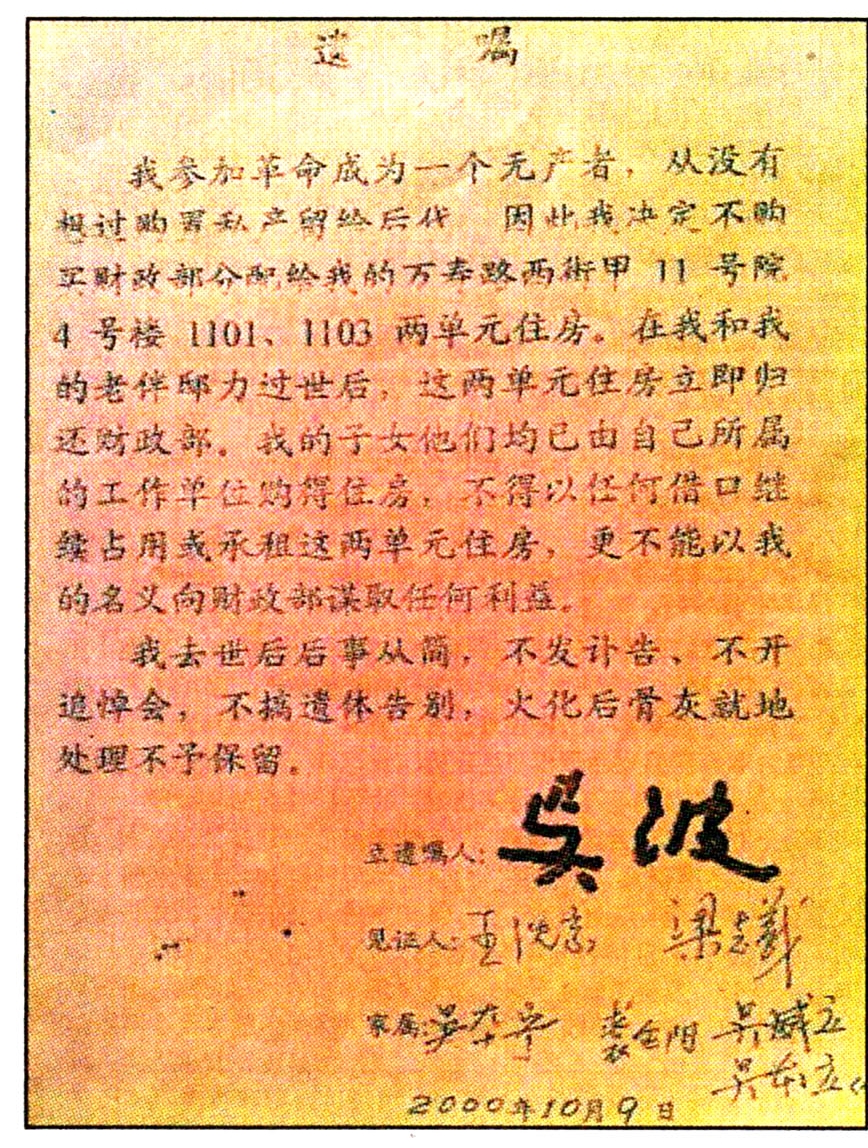 遗 嘱
我参加革命成为一个无产者，从没有
想过购置私产留给后代 因此我决定不购
买财政部分配给我的万寿路西街甲 11 号院
4 号楼 1101、1103 两单元住房。在我和我
的老伴邸力过世后，这两单元住房立即归
还财政部。我的子女他们均已由自己所属
的工作单位购得住房，不得以任何借口继
续占用或承租这两单元住房，更不能以我
的名义向财政部谋取任何利益。
我去世后后事从简，不发讣告、不开
追悼会，不搞遗体告别，火化后骨灰就地
处理不予保留。
立遗嘱人：吴波
见证人：王 梁
家属：吴 吴威立
吴本立
2000年10月9日